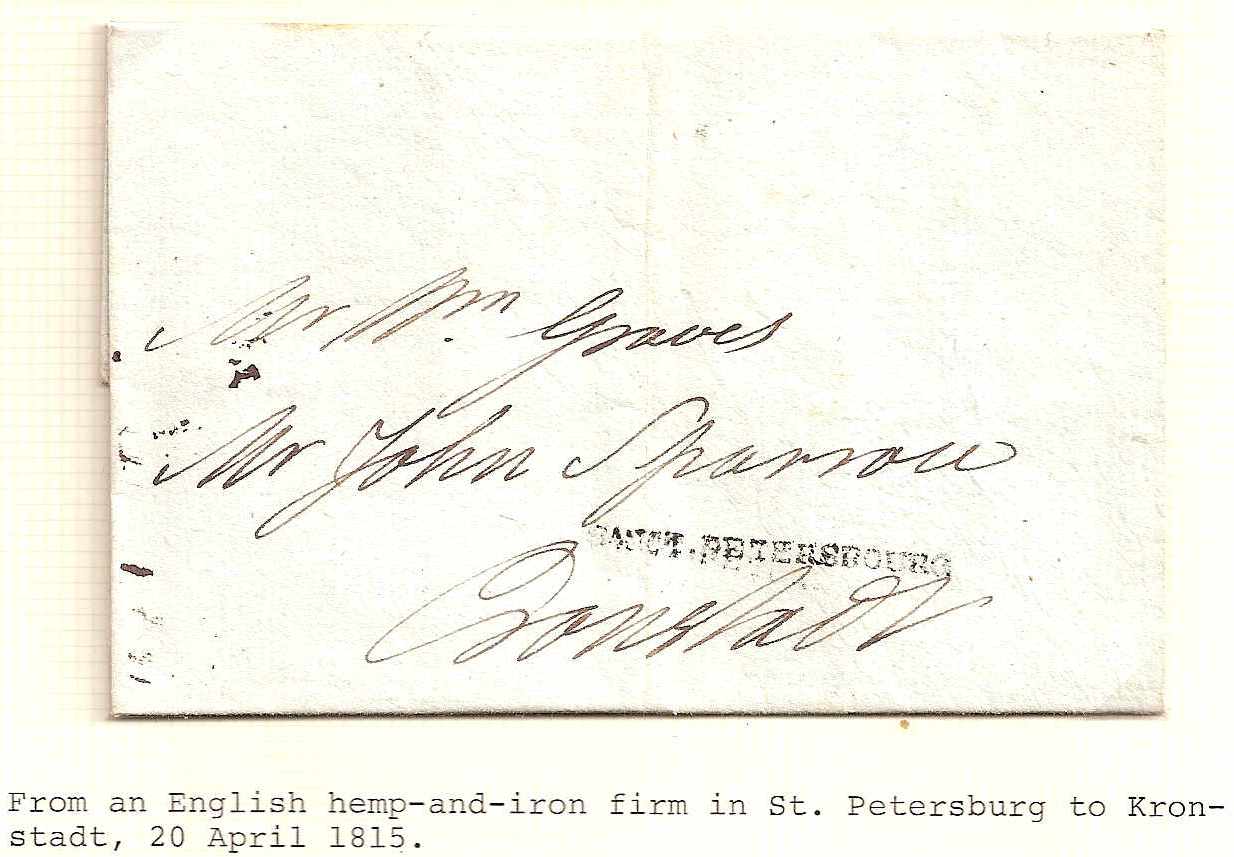 Mr Wm. Graves
Mr John Sparrow
SANCT.PETERSBOURG
Cronstadt
From an English hemp-and-iron firm in St. Petersburg to Kron-
stadt, 20 April 1815.